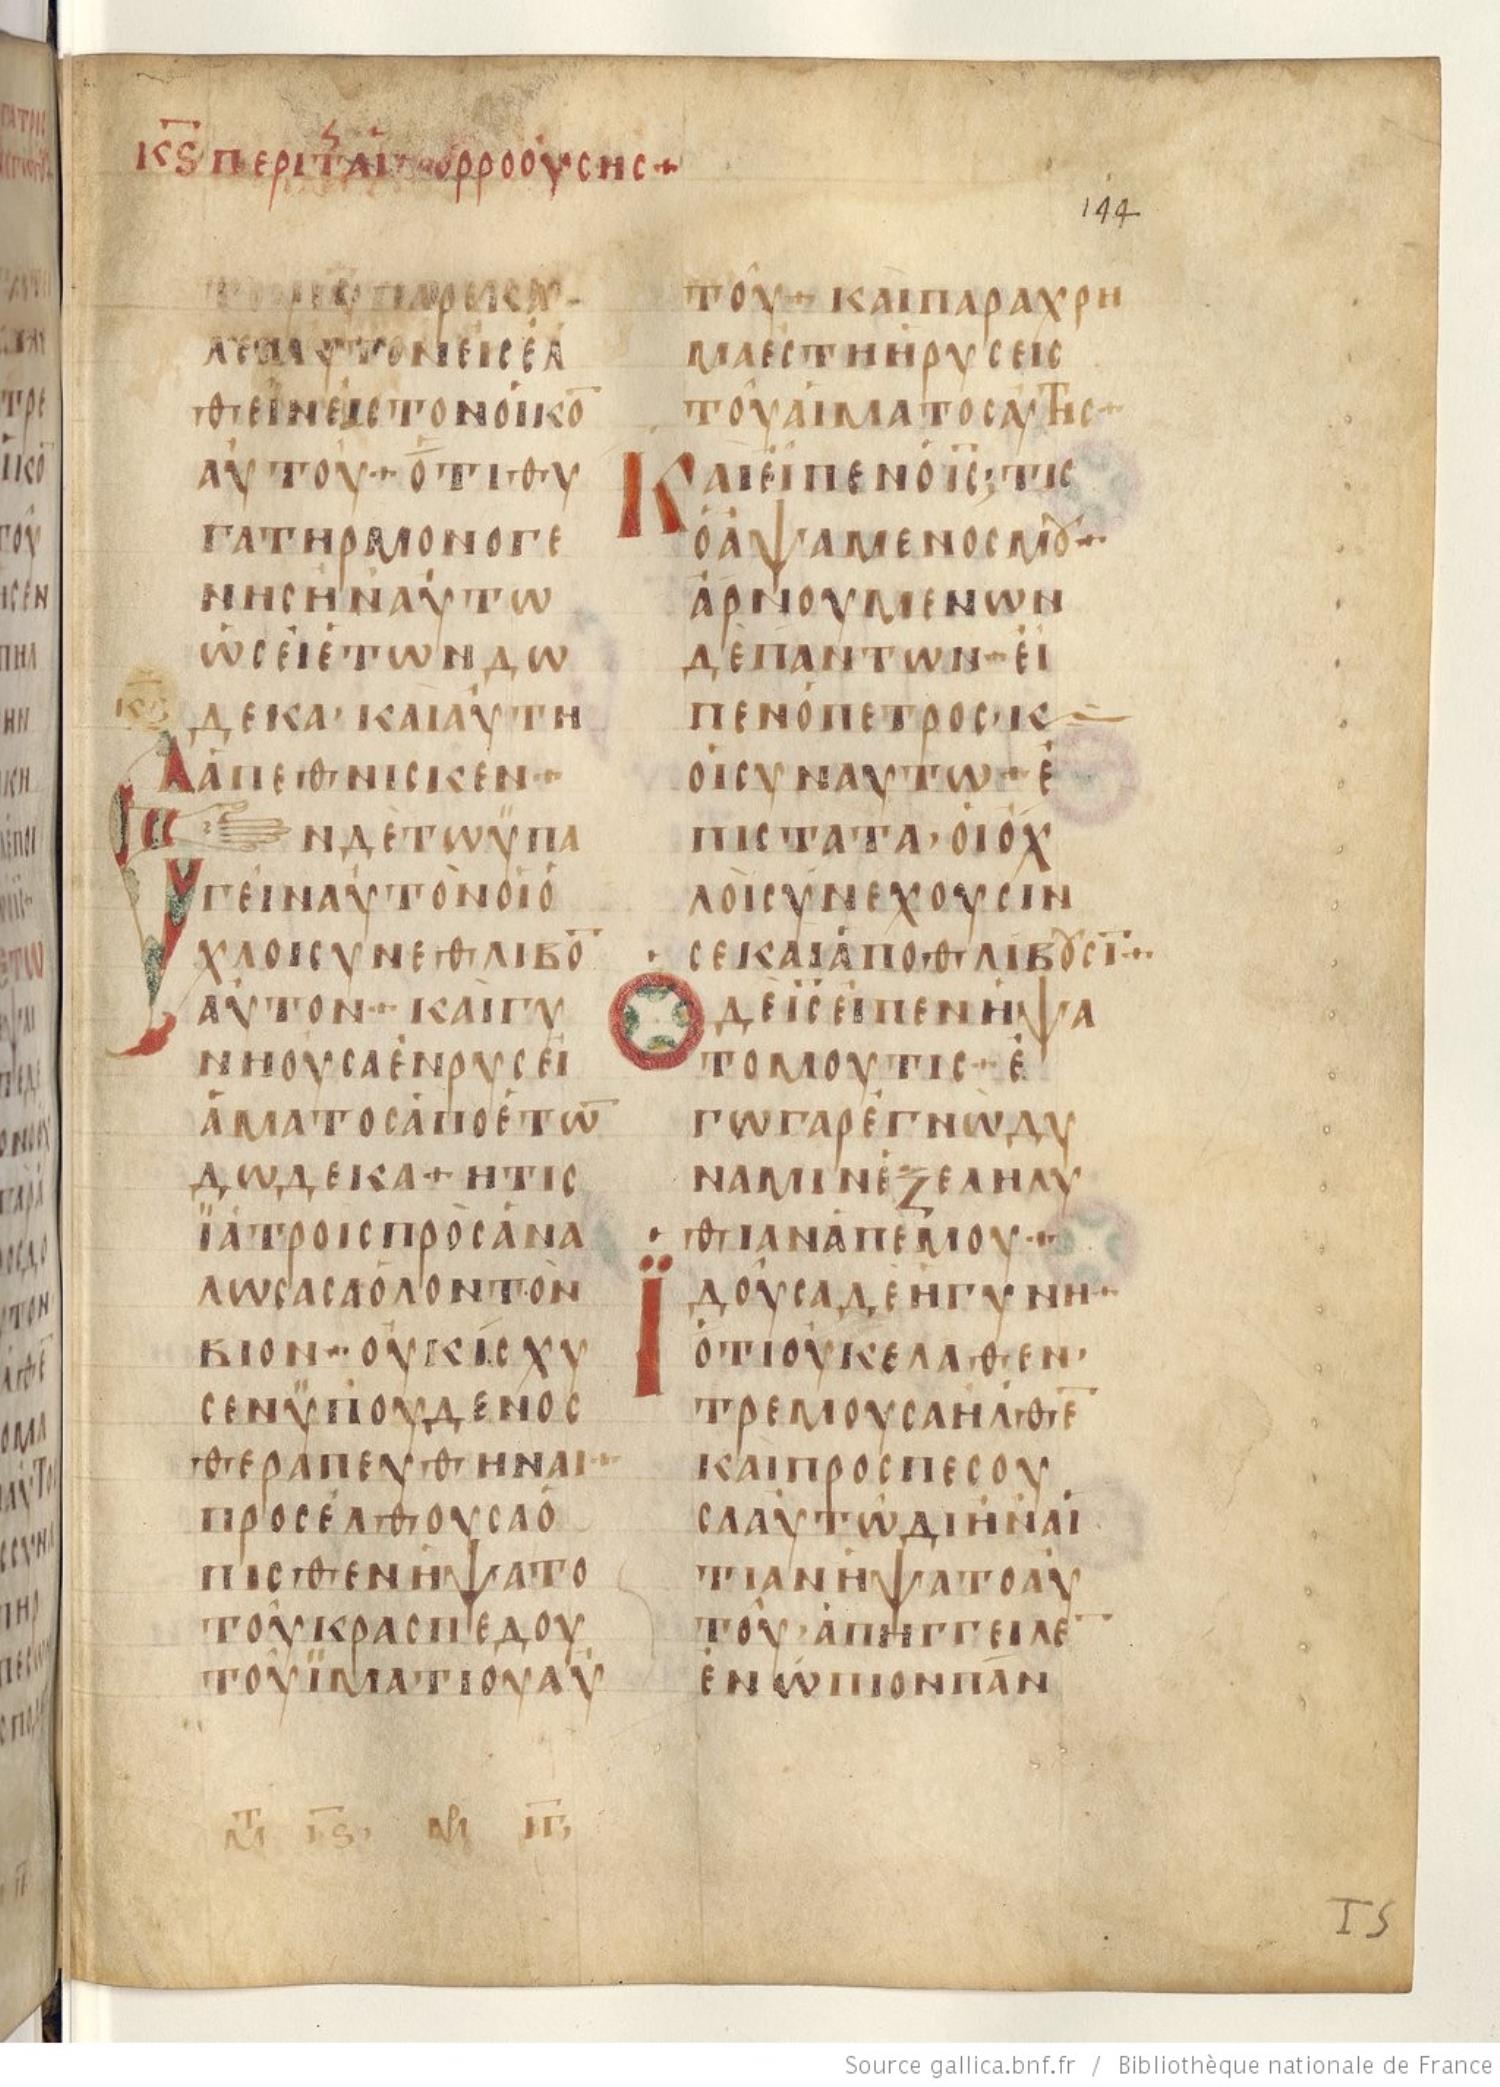 κϛ περι τ αι ορροούσης +
144
παρεκα
λει αυτονεισελ
θεῖνεἰςτονοἶκο̅
ἀυτου+ὅτιθυ
γατηρμονογε
νησἦναὐτω
ὡσεἰἐτωνδω
δεκα, καιἀύτη
ἀπεθνισκεν+
Ενδὲτωϋπα
γεἰναὐτὸνοἱὁ
χλοισυνεθλιβο̅
ἀυτον+καὶγυ
νηοὖσαἐνρυσεἰ
ἁματοσἀποἐτω̅
δωδεκα+ητις
ϊἀτροιςπρὸσἀνα
λωσασαὁλοντὸν
βιον+οὐκἰσχυ
σενϋπουδενος
θεραπευθῆναι+
προσἐλθουσαὀ
πισθενἡψατο
τοῦκρασπέδου
τοῦϊματιοὐαὐ
τοῦ+καὶπαραχρη
μαἐστηἡρυσεις
τοῦαἱματοσαυτῆς+
Καιεἰπενὁι̅ς̅;τις
ὁἁψαμενοσμȣ+
ἀρνουμενων
δὲπαντων+εἰ
πενὁπετρος,κ
οἱσυναυτω+ἐ
πιστατα,οἱὀχ
λοισυνεχουσιν
σεκαιἀποθλίβȣσι̅+
Οδὲι̅ς̅εἰπενἡψα
τομουτις+ἐ
γωγαρἐγνὼδυ
ναμινἐξεληλυ
θιανἀπἐμου+
Ϊδοῦσαδὲἡγυνη+
ὁτιοὐκελαθεν,
τρεμουσαἠλθε̅
καιπροσπεσου
σααὐτῶδιἡναἰ
τιανἡψατοαὐ
τοῦ,ἀπηγγειλε̅
ἐνώπιονπᾶν
κϛ
μτ ιϛ, μρ ιγ,
IS
Source gallica.bnf.fr / Bibliothèque nationale de France